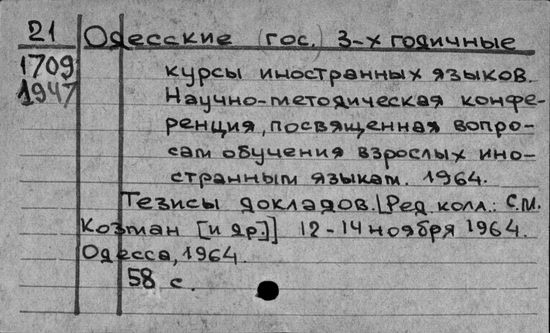 21 Одесские (гос.) 3-х годичные
1709 курсы иностранных языков.
1947 Научно-методическая конфе-
ренция, посвященная вопро-
сам обучения взрослых ино-
странным языкам. 1964.
Тезисы докладов. [Ред. колл.: С.М.
Козман [и др.]] 12-14 ноября 1964.
Одесса, 1964.
58 с.